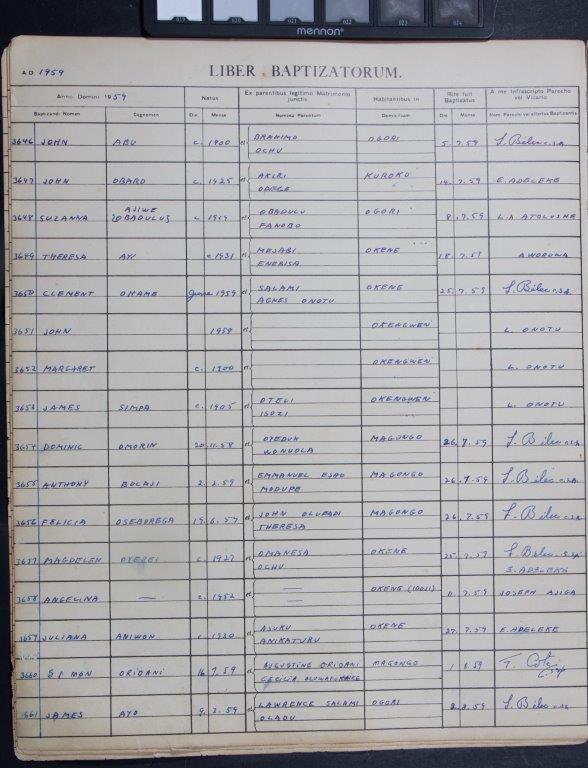 019 020 021 022 023 024
mennon
A D 1959
LIBER BAPTIZATORUM.
Anno Domini 1959
Natus
Ex parentibus legitimo Matrimonio junctis
Habitantibus in
Rite fuit Baptizatus
A me infrascripto Parocho vel Vicario
Baptizandi Nomen Cognomen Die Mense Nomina Parentum Domicilium Die Mense Nom. Parochi vel alterius Baptizantis
3646 JOHN ABU c. 1900 et BRAHIMO OCHU OGORI 5.7.59 S. Bélec c.s.sp.
3647 JOHN OBARO c. 1925 et AKIRI ODEGE KUROKO 14.7.59 E. ADELEKE
3648 SUZANNA AJIWE (OBADULU) c 1919 et OBADULU FANOBO OGORI 8.7.59 L.A. ATOLUSHE
3649 THERESA AYI c 1931 et MEJABI ENEBISA OKENE 18.7.59 AWODUWA
3650 CLEMENT OMAME June 1959 et SALAMI AGNES ONOTU OKENE 25.7.59 S. Bélec c.s.sp.
3651 JOHN 1959 et OKENGWEN L. ONOTU
3652 MARGARET c. 1900 et OKENGWEN L. ONOTU
3653 JAMES SIMPA c. 1905 et OTELI ISOZI OKENGWEN L. ONOTU
3654 DOMINIC OMORIN 20.11.58 et OYEDUN WONUOLA MAGONGO 26.7.59 S. Bélec c.s.sp.
3655 ANTHONY BOLAJI 2.2.59 et EMMANUEL ESHO MODUPE MAGONGO 26.7.59 S. Bélec c.s.sp.
3656 FELICIA OSEBOREGA 19.6.57 et JOHN OLUFADI THERESA MAGONGO 26.7.59 S. Bélec c.s.sp.
3657 MAGDELEN OYEZEI c. 1927 et OMANESA OCHU OKENE 25.7.59 S. Bélec c.s.sp. E. ADELEKE
3658 ANGELINA — c. 1952 et — — OKENE 11.7.59 JOSEPH AJIGA
3659 JULIANA ANIWON c 1930 et ASUKU ANIKATURU OKENE 27.7.59 E. ADELEKE
3660 SIMON ORIDANI 16.7.59 et AUGUSTINE ORIDANI CECILIA MAGONGO 1 8.59 T. Coté c.s.sp.
3661 JAMES AYO 9.2.59 et LAWRENCE SALAMI OLADU OGORI 2.8.59 S. Bélec c.s.sp.